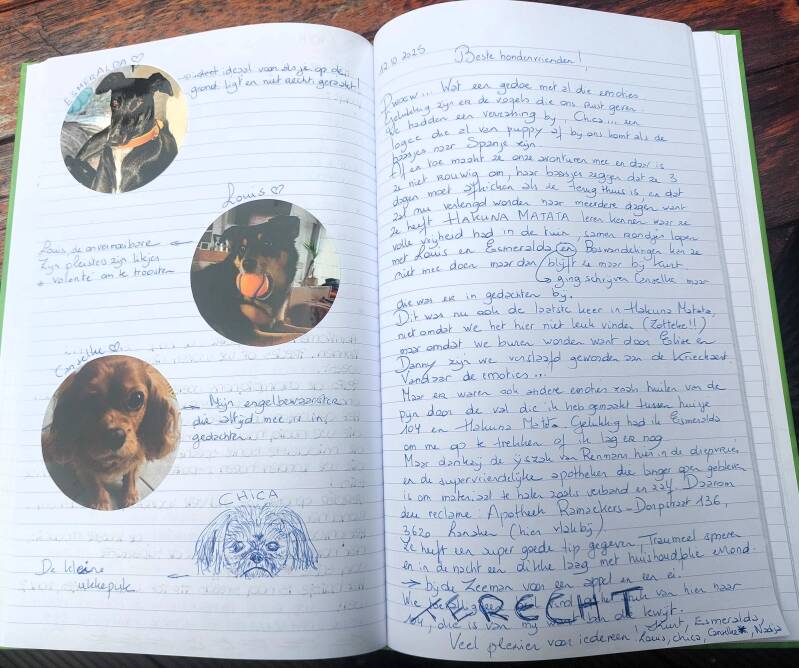 ESMERALDA ♡
ideaal voor als je op de
grond ligt en niet recht geraakt!
Louis ♡
Louis, de onvermoeibare
Zijn pleisters zijn likjes
+ volonté om te troosten
Canelke ♡
Mijn engelbewaarster
die altijd mee is in
gedachten.
CHICA
De kleine
ukkepuk
12.10.2025
Beste hondenvrienden!,
Pwoow... Wat een gedoe met al die emoties.
Gelukkig zijn er de vogels die ons rust geven.
We hadden een verrassing bij, Chica... een
logee die al van puppy af bij ons komt als de
baasjes naar Spanje zijn.
Af en toe maakt ze onze avonturen mee en daar is
ze niet rouwig om, haar baasjes zeggen dat ze 3
dagen moet afkicken als ze terug thuis is en dat
zal nu verlengd worden naar meerdere dagen want
ze heeft HAKUNA MATATA leren kennen waar ze
volle vrijheid had in de tuin, samen rondjes lopen
met Louis en Esmeralda en Boswandelingen kon ze
niet mee doen maar dan blijft ze maar bij Kurt
ging schrijven Canelke maar
die was er in gedachten bij.
Dit was nu ook de laatste keer in Hakuna Matata,
niet omdat we het hier niet leuk vinden (Zotteke!!)
maar omdat we buren worden want door Eliane en
Danny zijn we verslaafd geworden aan de Krieckaert
Vandaar de emoties...
Maar er waren ook andere emoties zoals huilen van de
pijn door de val die ik heb gemaakt tussen huisje
104 en Hakuna Matata. Gelukkig had ik Esmeralda
om me op te trekken of ik lag er nog.
Maar dankzij de ijszak van Renmans hier in de diepvries
en de supervriendelijke apotheker die langer open gebleven
is om materiaal te halen zoals verband en zalf. Daarom
deze reclame: Apotheek Ramaekers - Dorpstraat 136,
3620 Lanaken (hier vlakbij)
Ze heeft een super goede tip gegeven Traumeel smeren
en in de nacht een dikke laag met huishoudfolie errond.
→ bij de Zeeman voor een appel en een ei.
We
van hier naar
104, die is van mij want ben die kwijt.
TERECHT
Veel plezier voor iedereen! Kurt, Esmeralda,
Louis, Chica, Canelke, Nadja